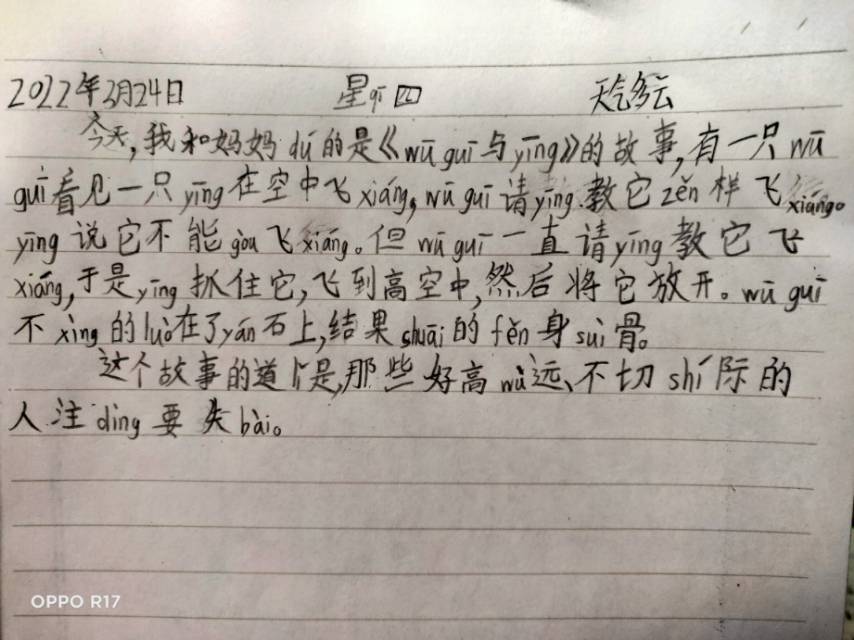 2022年3月24日 星qī四 天气多云
今天,我和妈妈dú的是《wū guī与yīng》的故事,有一只wū
guī看见一只yīng在空中飞xiáng,wū guī请yīng教它zěn样飞xiáng。
yīng说它不能gòu飞xiáng。但wū guī一直请yīng教它飞
xiáng,于是yīng抓住它,飞到高空中,然后将它放开。wū guī
不xìng的luò在了yán石上,结果shuāi的fěn身suì骨。
这个故事的道lǐ是,那些好高wù远、不切shí际的
人注dìng要失bài。
OPPO R17